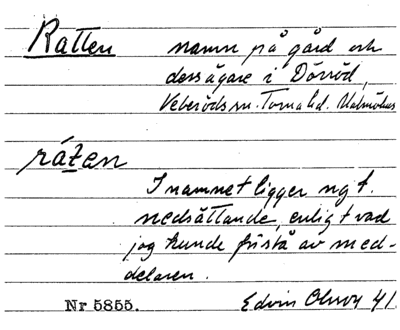 Ratten namn på gård och
dess ägare i Dörröd,
Veberöds sn. Torna hd. Malmöhus
ráten
I namnet ligger ngt.
nedsättande, enligt vad
jag kunde förstå av med-
delaren.
Nr 5855. Edvin 41